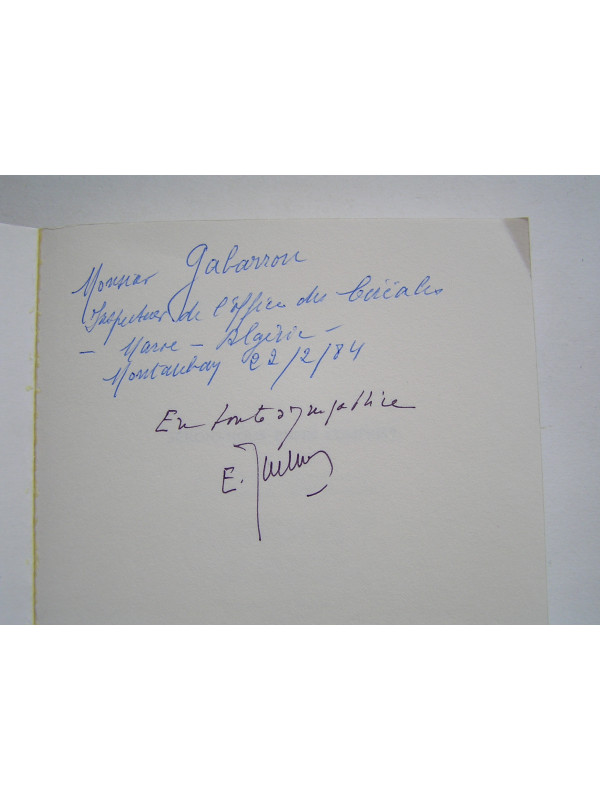 Monsieur Gabarrou
Inspecteur de l'office des Céréales
- Maroc - Algérie -
Montauban 22/2/84
En toute sympathie
E.